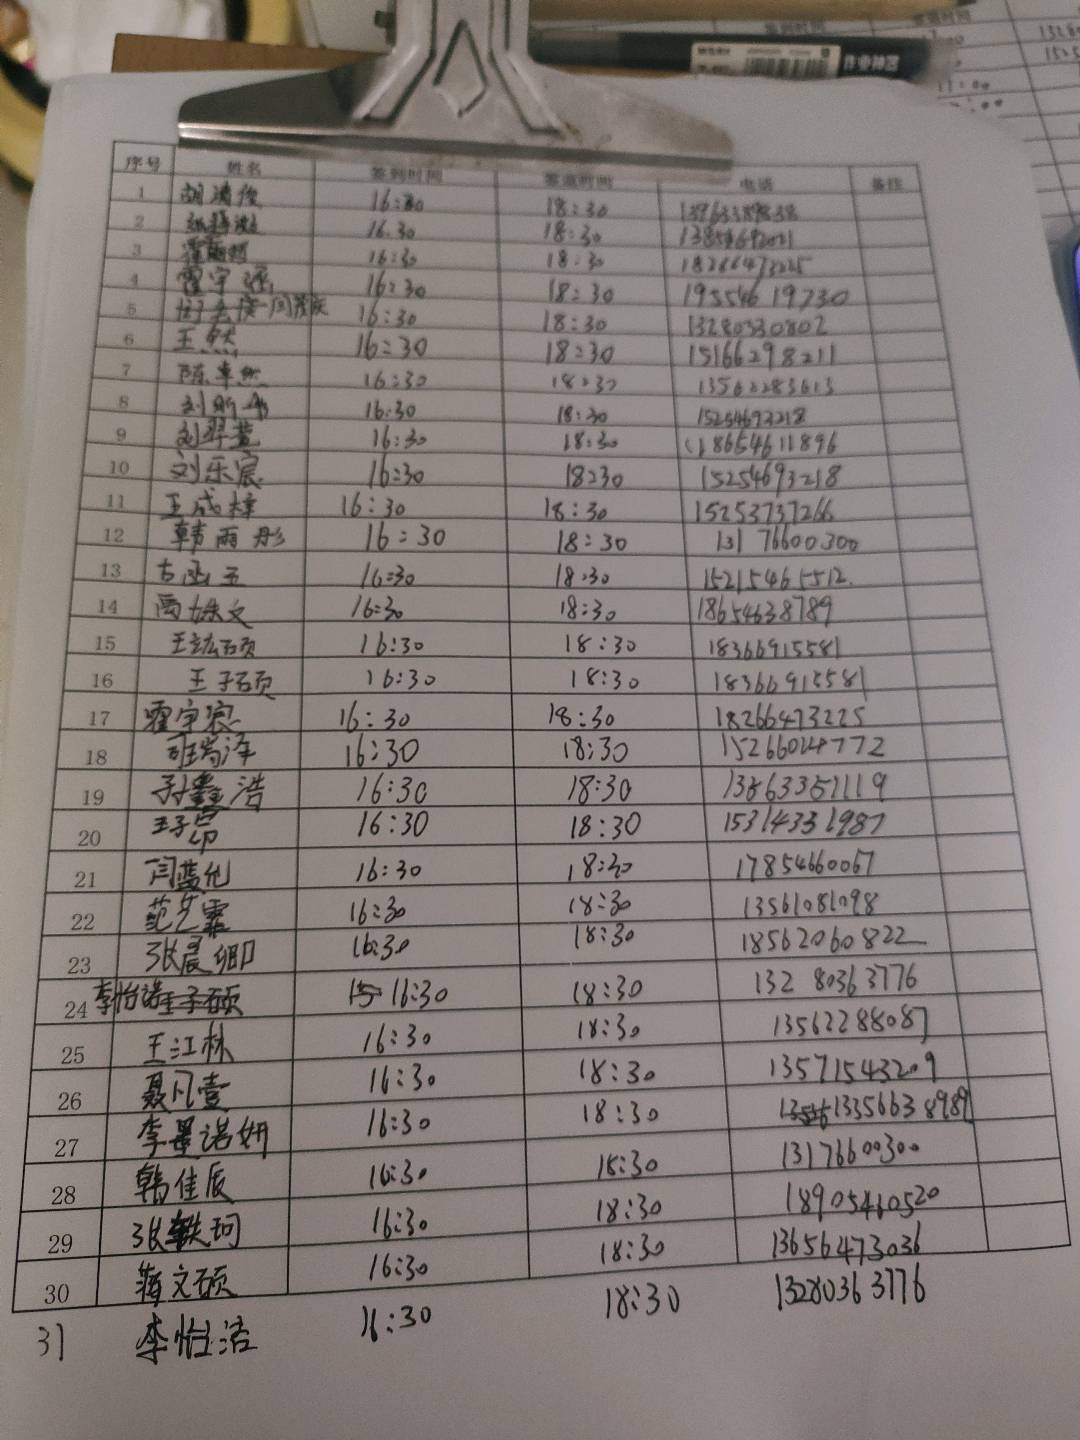 序号 姓名 签到时间 签退时间 电话 备注
1 16:30 18:30
2 16:30 18:30
3 16:30 18:30 18266473225
4 霍宇涵 16:30 18:30 19554619730
5 16:30 18:30 13280330802
6 王然 16:30 18:30 15166298211
7 陈卓然 16:30 18:30 13562283613
8 16:30 18:30 15254693218
9 刘羿萱 16:30 18:30 18654611896
10 刘乐宸 16:30 18:30 15254693218
11 王成梓 16:30 18:30 15253737266
12 韩雨彤 16:30 18:30 131 76600300
13 16:30 18:30 15215465512
14 16:30 18:30 18654638789
15 王竑硕 16:30 18:30 18366915581
16 王子硕 16:30 18:30 18366915581
17 霍宇宸 16:30 18:30 18266473225
18 班瑞泽 16:30 18:30
19 孙鑫浩 16:30 18:30 13863351119
20 王子昂 16:30 18:30 15314331987
21 闫蓝允 16:30 18:30 17854660067
22 范艺霏 16:30 18:30 13561081098
23 张晨卿 16:30 18:30 18562060822
24 李怡诺 王子硕 15 16:30 18:30 132 8036 3776
25 王江林 16:30 18:30 13562288087
26 聂凡壹 16:30 18:30 13571543209
27 李墨诺妍 16:30 18:30 13356638989
28 韩佳辰 16:30 18:30 13176600300
29 张轶珂 16:30 18:30 18905460520
30 蒋文硕 16:30 18:30 13656473036
31 李怡洁 16:30 18:30 13280363776